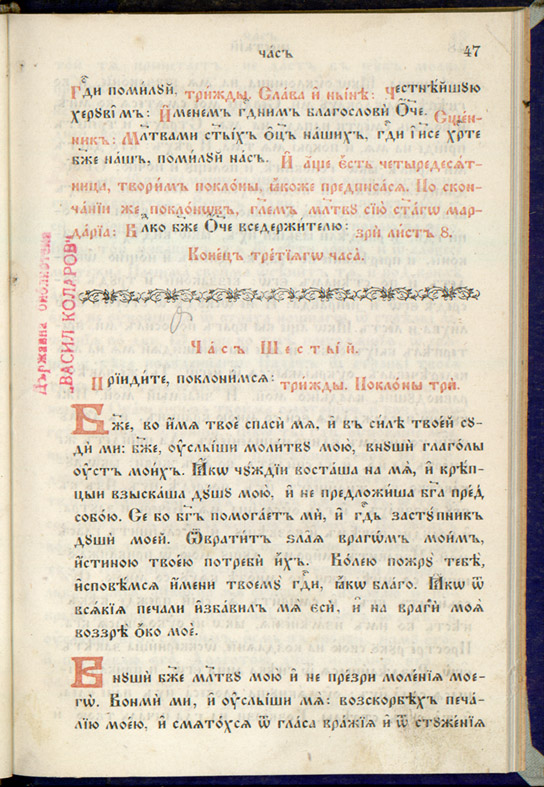 часъ
47
Гдⷭ҇и поми́лꙋй, три́жды. Сла́ва и҆ ны́нѣ: Честнѣ́йшꙋю
херꙋві́мъ: И҆́менемъ гдⷭ҇нимъ благословѝ ѻ҆́тче. Сщ҃е́н-
никъ: Мл҃твами ст҃ы́хъ ѻ҆ц҃ъ на́шихъ, гдⷭ҇и і҆и҃се хрⷭ҇тѐ
бж҃е на́шъ, поми́лꙋй на́съ. И҆ а҆́ще є҆́сть четыредеса́т-
ница, твори́мъ покло́ны, ꙗ҆́коже предписа́сѧ. По скон-
ча́нїи же покло́нѡвъ, гл҃емъ мл҃твꙋ сїю̀ ст҃а́гѡ мар-
да́рїа: Влⷣко бж҃е ѻ҆́ч҃е вседержи́телю: зрѝ ли́стъ 8.
Коне́цъ тре́тїѧгѡ часа̀.
Държавна библиотека
„ВАСИЛ КОЛАРОВ"
Ча́съ Шесты́й.
Прїиди́те, поклони́мсѧ: три́жды. Покло́ны трѝ.
Бж҃е, во и҆́мѧ твоѐ спаси́ мѧ, и҆ въ си́лѣ твое́й сꙋ-
ди́ ми: бж҃е, ᲂу҆слы́ши моли́твꙋ мою̀, внꙋшѝ глаго́лы
ᲂу҆́стъ мои́хъ. Ꙗ҆́кѡ чꙋ́ждїи воста́ша на мѧ̀, и҆ крѣ́п-
цыи взыска́ша дꙋ́шꙋ мою̀, и҆ не предложи́ша бг҃а пред̾
собо́ю. Се́ бо бг҃ъ помога́етъ мѝ, и҆ гдⷭ҇ь застꙋ́пникъ
дꙋшѝ мое́й. Ѿврати́тъ ѕла̑ѧ врагѡ́мъ мои̑мъ,
и҆́стиною твое́ю потребѝ и҆̀хъ. Во́лею пожрꙋ̀ тебѣ̀,
и҆сповѣ́мсѧ и҆́мени твоемꙋ̀ гдⷭ҇и, ꙗ҆́кѡ бла́го. Ꙗ҆́кѡ ѿ
всѧ́кїѧ печа́ли и҆зба́вилъ мѧ̀ є҆сѝ, и҆ на врагѝ моѧ̑
воззрѣ̀ ѻ҆́ко моѐ.
Внꙋшѝ бж҃е мл҃твꙋ мою̀ и҆ не пре́зри моле́нїѧ мое-
гѡ̀. Вонми́ ми, и҆ ᲂу҆слы́ши мѧ̀: возскорбѣ́хъ печа́-
лїю мое́ю, и҆ смѧто́хсѧ ѿ гла́са вра́жїѧ и҆ ѿ стꙋже́нїѧ